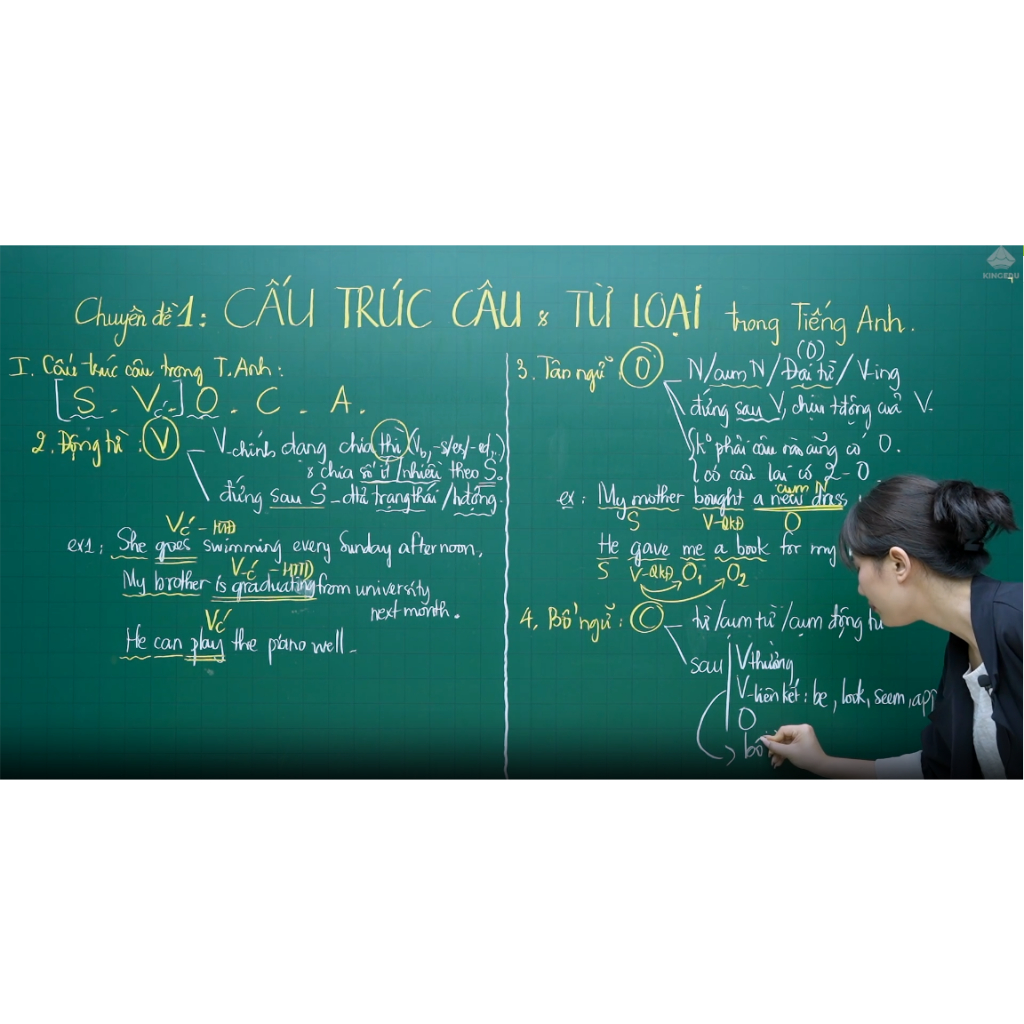 KINGEDU
Chuyên đề 1: CẤU TRÚC CÂU & TỪ LOẠI trong Tiếng Anh.
I. Cấu trúc câu trong T.Anh:
[S - V c/] O - C - A.
2. Động từ: V
V-chính dạng chia thì (V₀, -s/es/-ed,..)
& chia số ít/nhiều theo S.
đứng sau S - chỉ trạng thái/hđộng.
Vc/ - HTĐ
ex1: She goes swimming every Sunday afternoon.
V-c/ - HTTD
My brother is graduating from university
next month.
Vc/
He can play the piano well.
3. Tân ngữ: O
(O)
N/cụm N/Đại từ/V-ing
đứng sau V, chịu tđộng của V.
k° phải câu nào cũng có O.
có câu lại có 2 - O
cụm N
ex: My mother bought a new dress
S V-QKĐ O
He gave me a book for my
S V-QKĐ O₁ O₂
4. Bổ ngữ: C
từ/cụm từ/cụm động từ
sau V thường
V-liên kết: be, look, seem, app
O
bổ